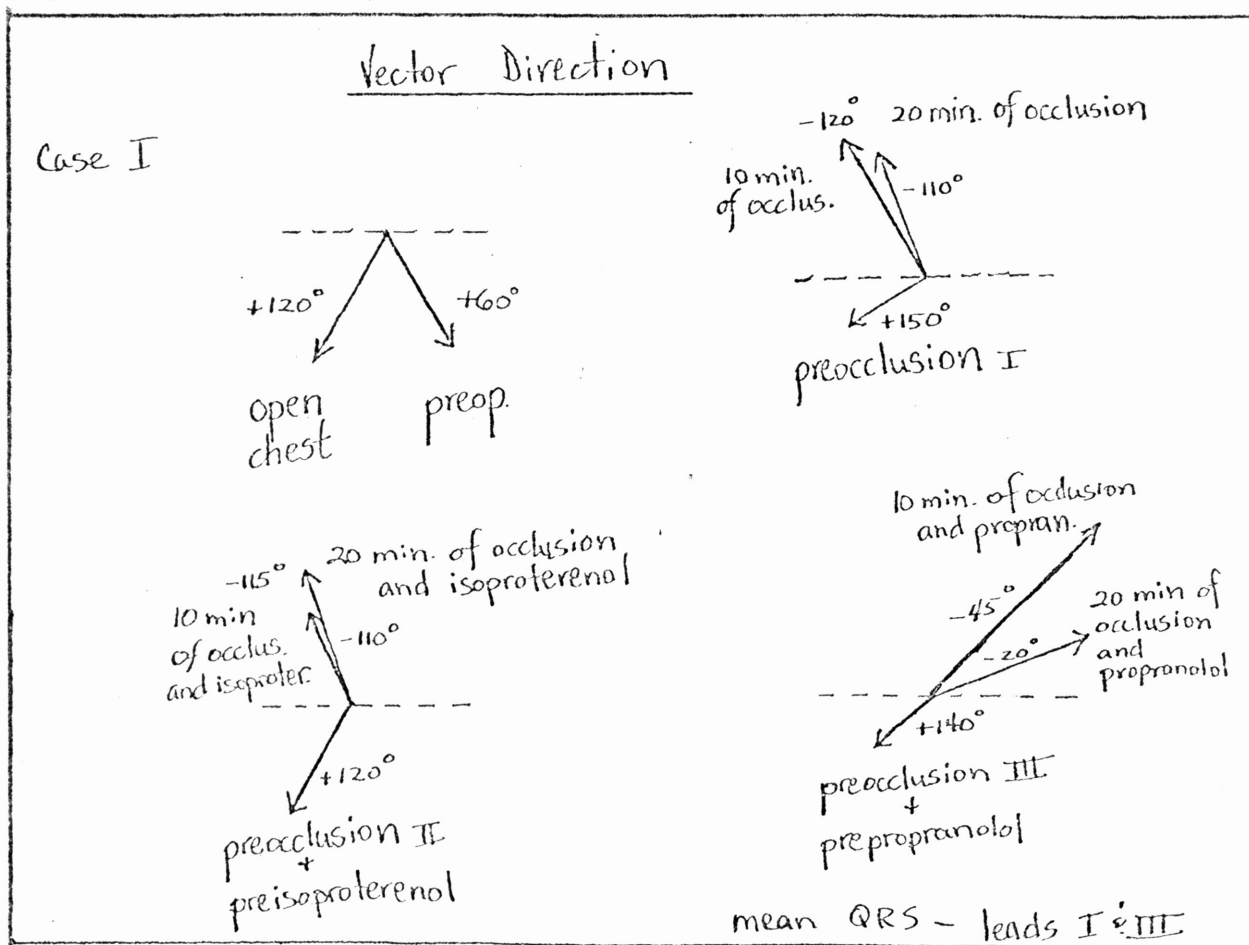 Vector Direction
Case I
+120°
+60°
open
chest
preop.
-120°
20 min. of occlusion
10 min.
of occlus.
-110°
+150°
preocclusion I
-115°
20 min. of occlusion
and isoproterenol
10 min
of occlus.
and isoproter.
-110°
+120°
preocclusion II
+
preisoproterenol
10 min. of occlusion
and propran.
-45°
-20°
20 min of
occlusion
and
propranolol
+140°
preocclusion III
+
prepropranolol
mean QRS - leads I & III